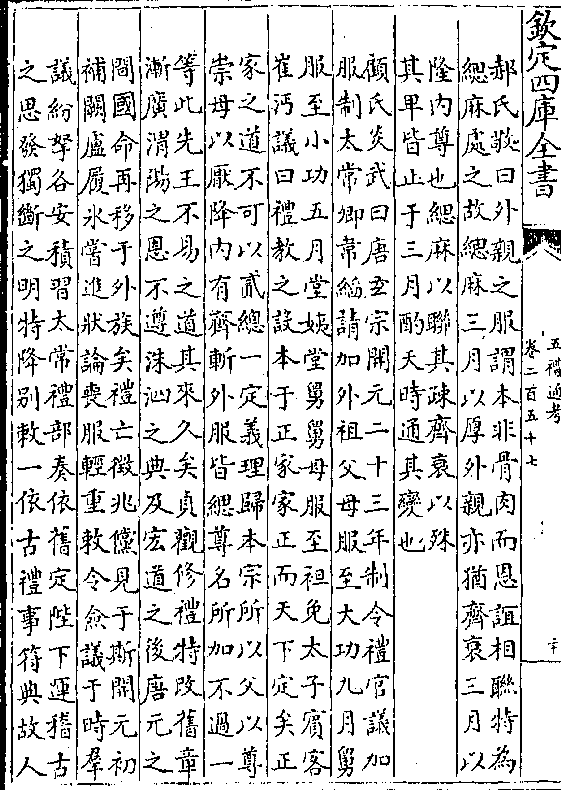 欽定四庫全書
五禮通考
卷二百五十七
郝氏敬曰外親之服謂本非骨肉而恩誼相聯特為
緦麻處之故緦麻三月以厚外親亦猶齊衰三月以
隆内尊也緦麻以聯其疎齊衰以殊
其卑皆止于三月酌天時通其變也
顧氏炎武曰唐玄宗開元二十三年制令禮官議加
服制太常卿韋縚請加外祖父母服至大功九月舅
服至小功五月堂姨堂舅舅母服至袒免太子賓客
崔沔議曰禮教之設本于正家家正而天下定矣正
家之道不可以貳總一定義理歸本宗所以父以尊
崇母以厭降内有齊斬外服皆緦尊名所加不過一
等此先王不易之道其來久矣貞觀修禮特改舊章
漸廣渭陽之恩不遵洙泗之典及宏道之後唐元之
間國命再移于外族矣禮亡徵兆儻見于斯開元初
補闕盧履氷嘗進狀論喪服輕重敕令僉議于時羣
議紛拏各安積習太常禮部奏依舊定陛下運稽古
之思發獨斷之明特降别敕一依古禮事符典故人